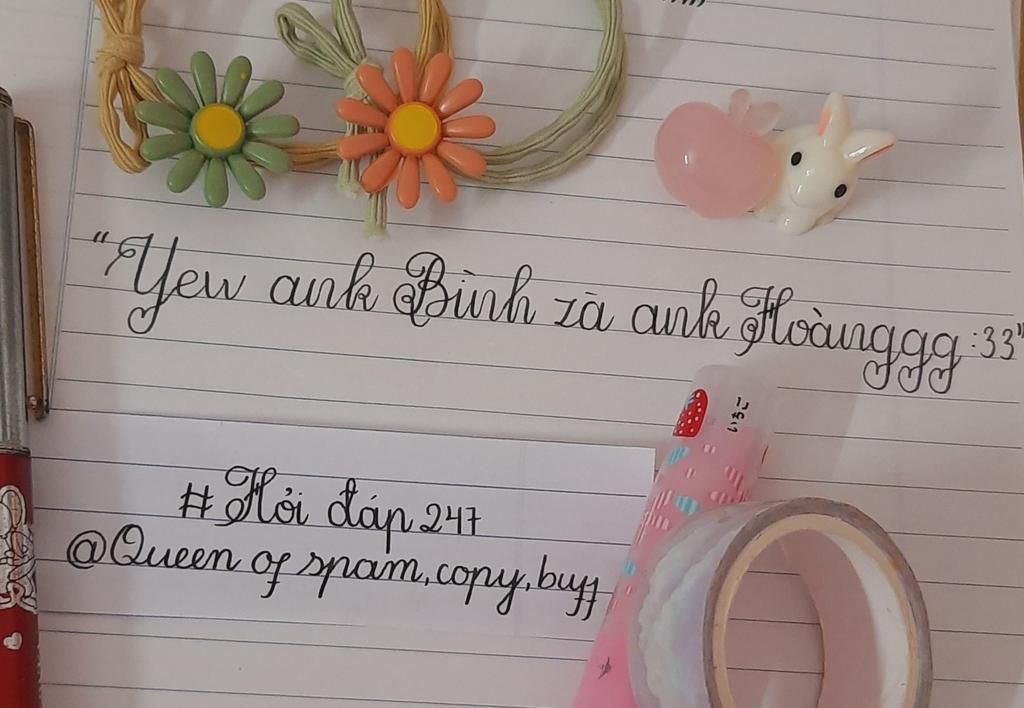 "Yew anh Bình zà anh Hoànggg :33"
いちご
#Hỏi đáp 247
@Queen of spam,copy,buff